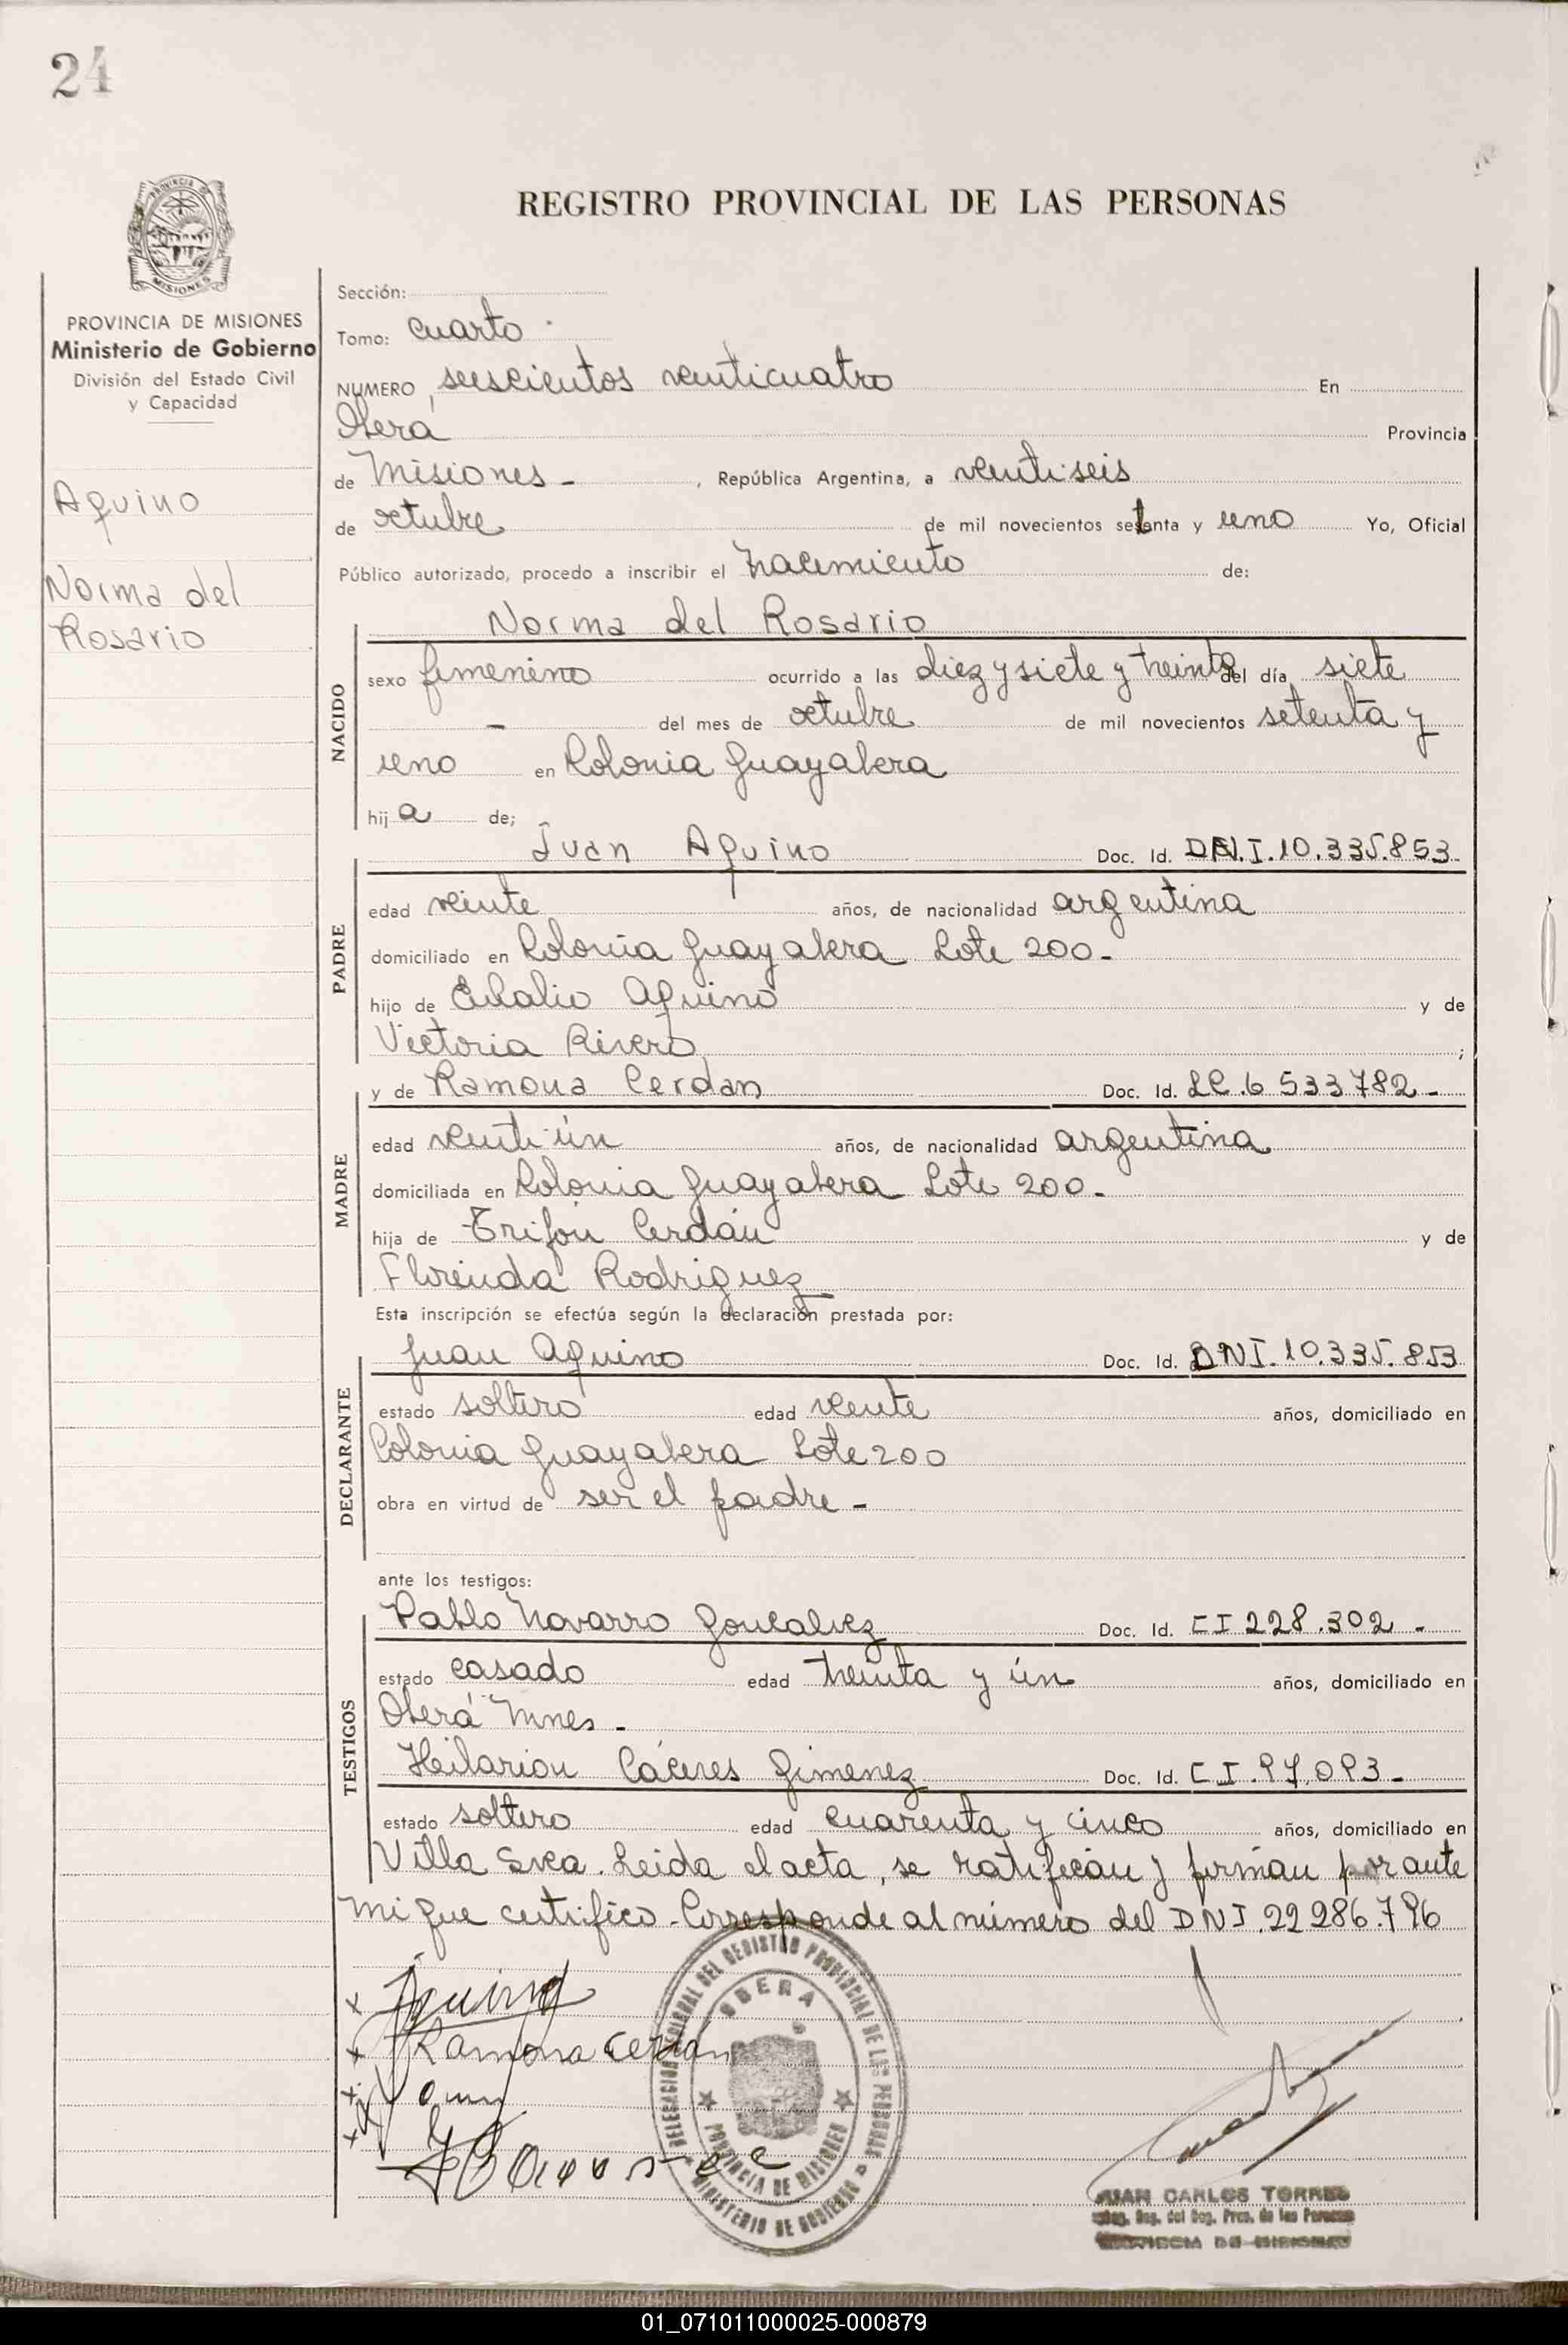 24
REGISTRO PROVINCIAL DE LAS PERSONAS
PROVINCIA DE MISIONES
PROVINCIA DE MISIONES
Ministerio de Gobierno
División del Estado Civil
y Capacidad
Aquino
Norma del
Rosario
Sección:
Tomo: cuarto
NUMERO seiscientos venticuatro En
Oberá Provincia
de Misiones - , República Argentina, a venti seis
de octubre de mil novecientos setenta y uno Yo, Oficial
Público autorizado, procedo a inscribir el nacimiento de:
NACIDO
Norma del Rosario
sexo femenino ocurrido a las diez y siete y treinta del día siete
- del mes de octubre de mil novecientos setenta y
uno en Colonia Guayabera
hija de;
PADRE
Juan Aquino Doc. Id. DN.I.10.335.853
edad veinte años, de nacionalidad argentina
domiciliado en Colonia Guayabera Lote 200.
hijo de Eulalio Aquino y de
Victoria Rivero ;
MADRE
y de Ramona Cerdan Doc. Id. LC.6 533782 -
edad venti ún años, de nacionalidad argentina
domiciliada en Colonia Guayabera Lote 200.
hija de Trifón Cerdán y de
Florinda Rodriguez
Esta inscripción se efectúa según la declaración prestada por:
DECLARANTE
Juan Aquino Doc. Id. DNI.10.335.853
estado soltero edad veinte años, domiciliado en
Colonia Guayabera Lote 200
obra en virtud de ser el padre -
ante los testigos:
TESTIGOS
Pablo Navarro Goncalvez Doc. Id. CI 228.302 -
estado casado edad treinta y ún años, domiciliado en
Oberá Mnes -
Heilarion Cáceres Gimenez Doc. Id. C I.97.093 -
estado soltero edad cuarenta y cinco años, domiciliado en
Villa Svea. Leida el acta, se ratifican y firman por ante
mi que certifico - Corresponde al número del DNI.22 286.796
Aquino
Ramona Cerdán
DELEGACION DEL REGISTRO PROVINCIAL DE LAS PERSONAS
OBERA
PROVINCIA DE MISIONES
MINISTERIO DE GOBIERNO
JUAN CARLOS TORRES
Reg. Prov. de las Personas
PROVINCIA DE MISIONES
01_071011000025-000879